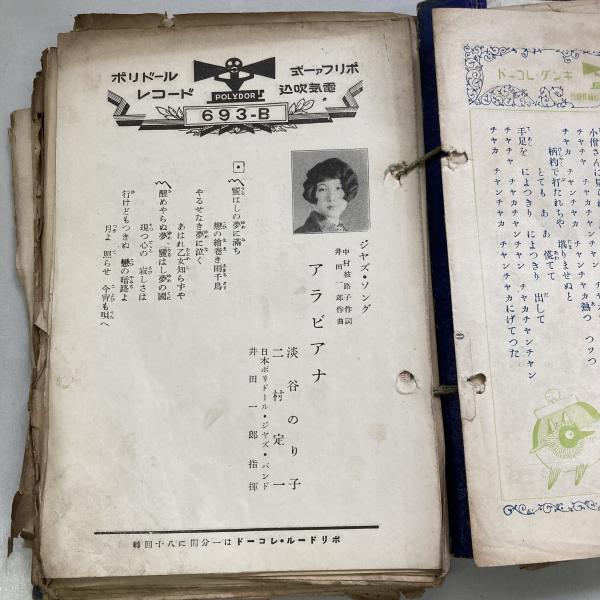 ポリファー式
電氣吹込
ポリドール
レコード
POLYDOR
693-B
ジャズ・ソング
中村彼路子作詞
井田一郎作曲
アラビアナ
淡谷のり子
二村定一
日本ポリドール・ジャズ・バンド
井田一郎指揮
麗はしの夢に滿ち
戀の繪巻き雨千鳥
やるせなき夢に泣く
あはれ乙女知らずや
醒めやらぬ夢 麗はし夢の國
現つ心の 寂しさは
行けどもつきぬ 戀の暗路よ
月よ 照らせ 今宵も唄へ
ポリドール・レコードは一分間に八十回轉
キング・レコード
小僧さんに
チャカ チャン チャカチャン
柄杓で打たれちや 堪りませぬと
チャチャ チャカチャカ熱つ つツつ
とても あ あ 慌てて
手足を によつきり によつきり 出して
チャチャ チャカチャカ チャカチャンチャン
チャカ チャンチャン チャンチャカにげてつた